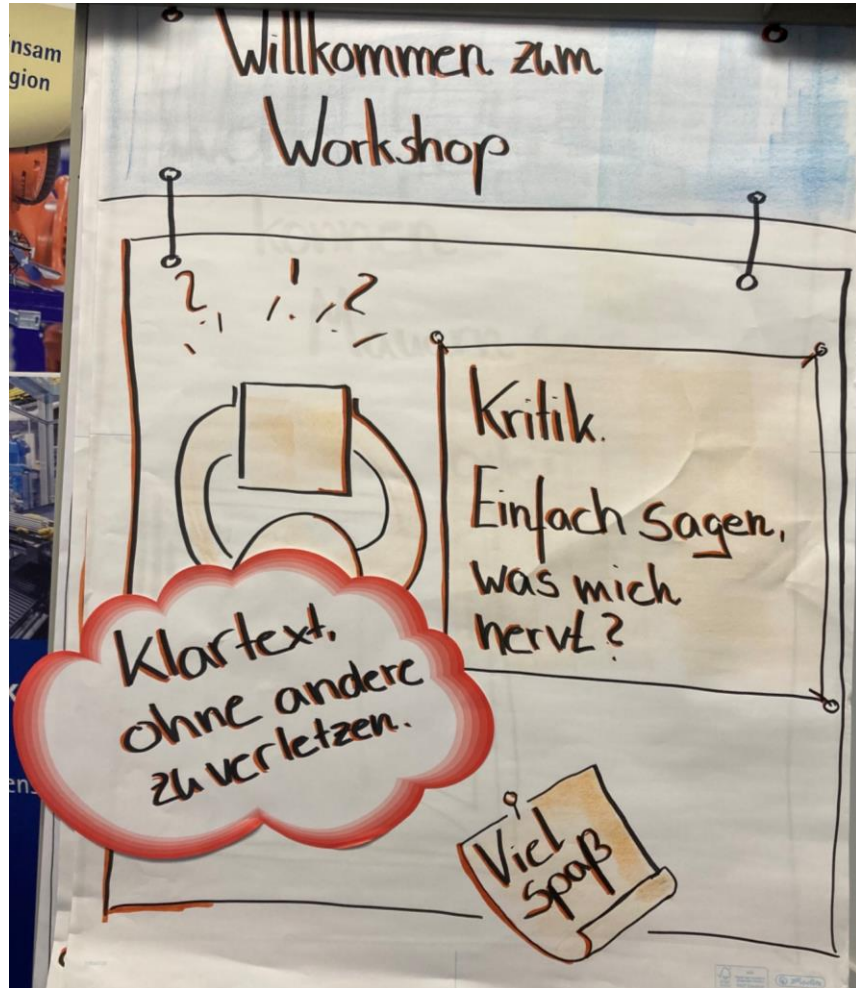 nsam
gion
Willkommen zum
Workshop
? ! ?
Kritik.
Einfach sagen,
was mich
nervt?
Klartext,
ohne andere
zu verletzen.
Viel
Spaß